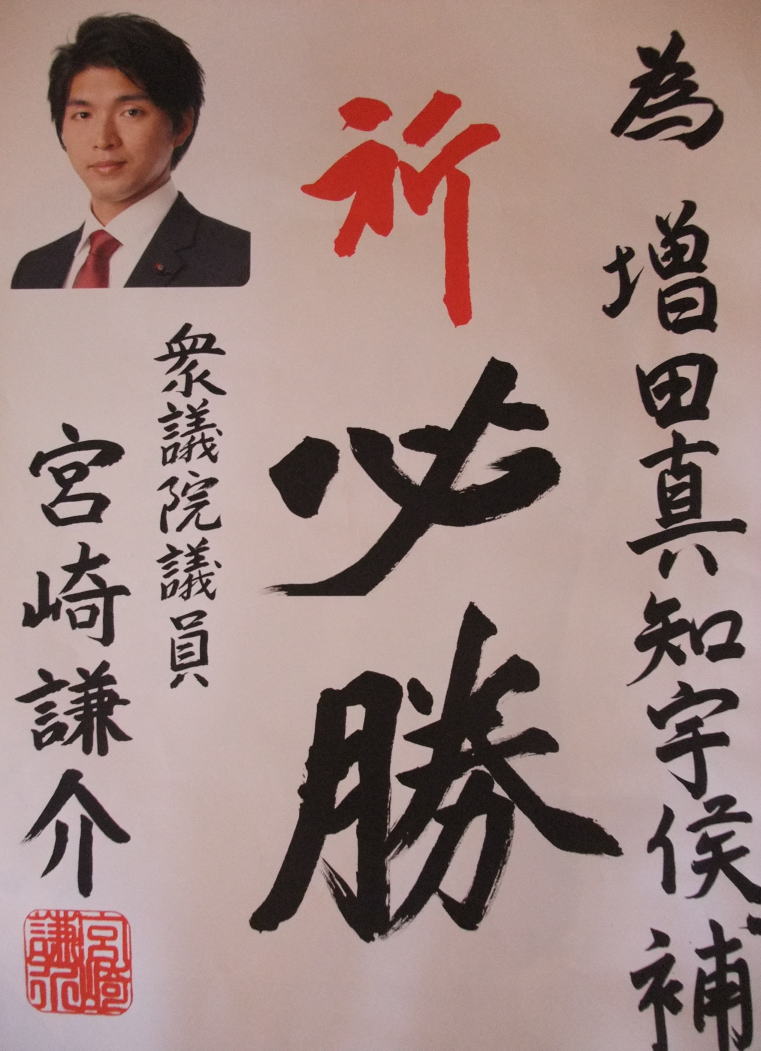 為 増田真知宇候補
祈
必
勝
衆議院議員
宮崎謙介
宮崎謙介